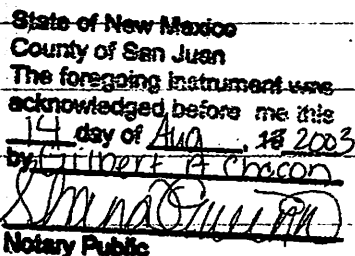 State of New Mexico
County of San Juan
The foregoing instrument was
acknowledged before me this
14 day of Aug. 18 2003
by Gilbert A Chacon
Notary Public